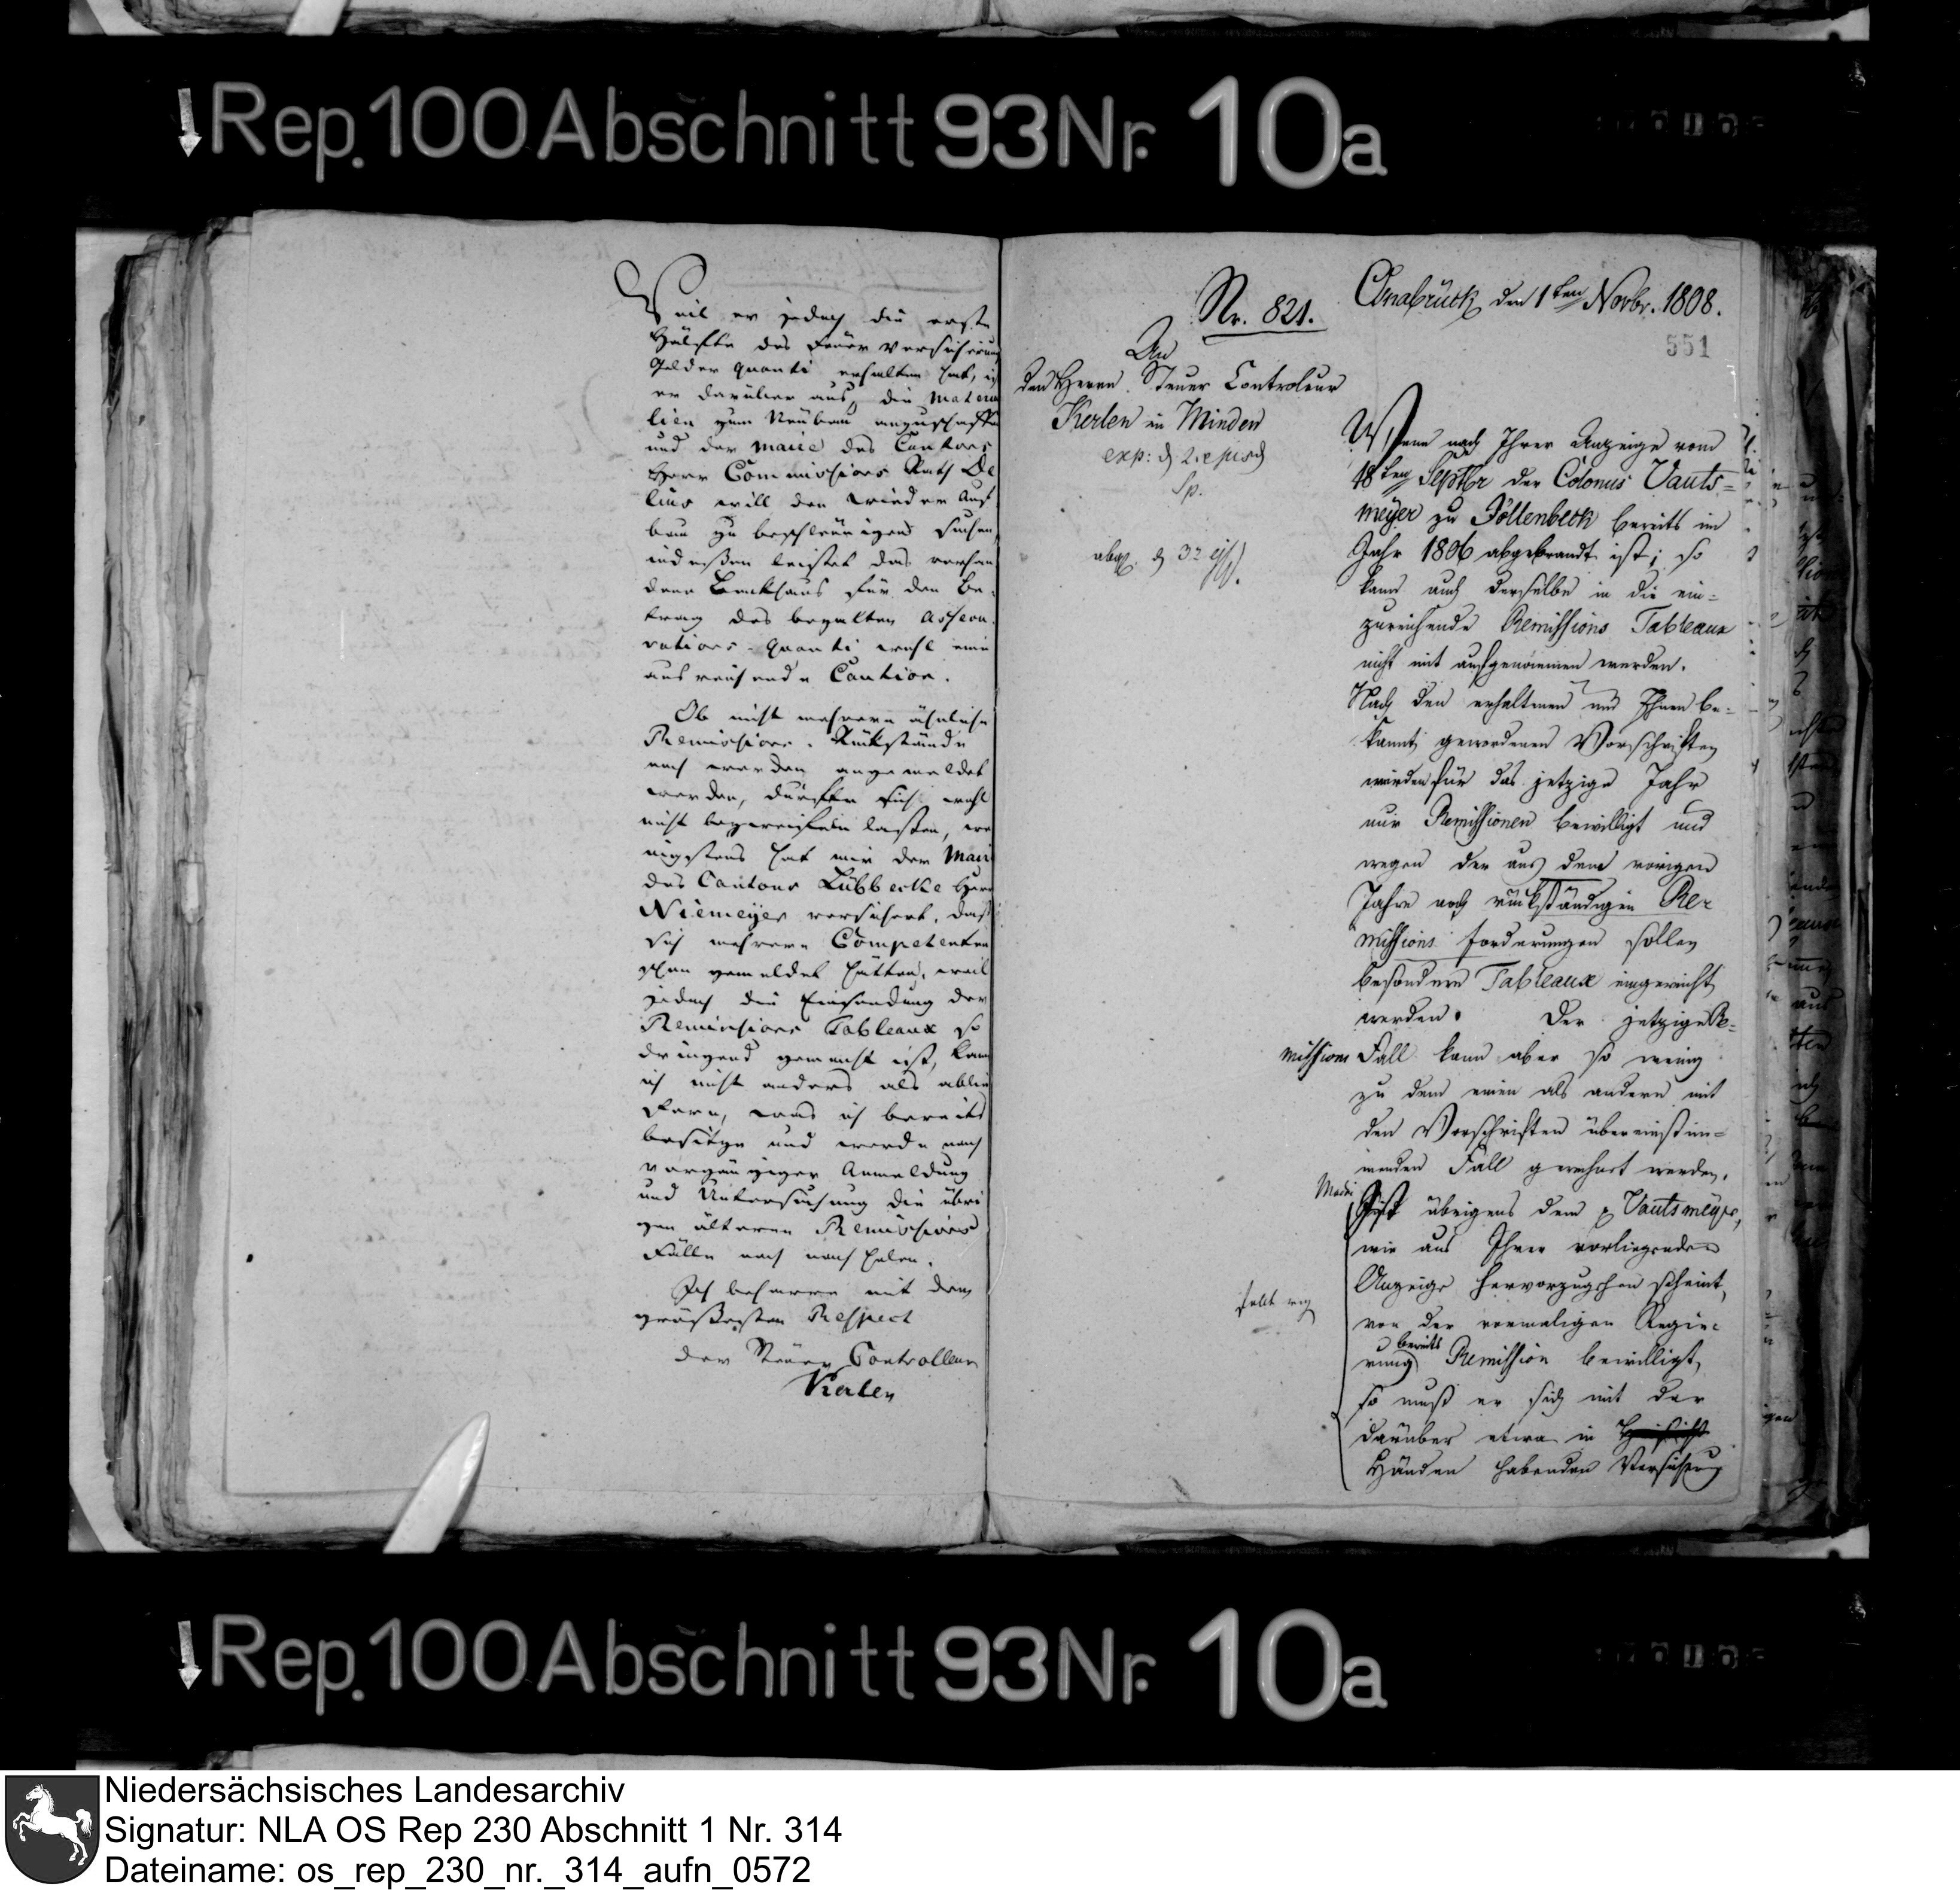 Rep. 100 Abschnitt 93 Nr. 10a
Weil er jedoch die erste
Hälfte des Feuer Versicherungs
Gelder quanti erhalten hat, ist
er darüber aus, die Materia
lien zum Neübau anzuschaffen
und der Maire des Cantons
Herr Commissions Rath De
lius will den wieder Auf
bau zu beschleünigen suchen,
indeßen leistet das vorhan
dene Backhaus für den Be-
trag des bezalten Assecu-
rations-Quanti wohl eine
ausreichende Caution.
Ob nicht mehrere ähnliche
Remissions-Rükstände
noch werden angemeldet
werden, dürften sich wohl
nicht bezweifeln laßen, we
nigstens hat mir der Maire
des Cantons Lübbecke Herr
Niemeyer versichert, daß
sich mehrere Competenten
schon gemeldet hätten, weil
jedoch die Einsendung der
Remissions Tableaux so
dringend gemacht ist, kann
ich nicht anders als ablie
fern, was ich bereits
besitze und werde nach
vorgängiger Anmeldung
und Untersuchung die übri
gen älteren Remissions
Fälle noch nach holen.
Ich beharre mit dem
größesten Respect
der Steüer Controlleur
Kerlen
Nr. 821.
Osnabrück den 1ten Novbr. 1808.
551
An
den Herrn Steuer Controleur
Kerlen in Minden
exp: d 2.
Sp.
abg. d 3t ejsd.
Wenn nach Ihrer Anzeige vom
18ten Septbr der Colonus Vauts=
meyer zu Jöllenbeck bereits im
Jahr 1806 abgebrandt ist; so
kann auch derselbe in die ein=
zureichende Remissions Tableaux
nicht mit aufgenommen werden.
Nach den erhaltenen und Ihnen be=
kannt gewordenen Vorschriften
werden für das jetzige Jahr
nur Remissionen bewilligt und
wegen der aus dem vorigen
Jahre noch rückständigen Re=
missions forderungen sollen
besondere Tableaux eingereicht
werden. Der jetzige Re=
missions Fall kann aber so wenig
zu dem einen als andern mit
den Vorschriften übereinstim=
menden Fall gerechnet werden.
Ist übrigens dem p Vautsmeyer,
wie aus Ihrer vorliegenden
Anzeige hervorzugehen scheint,
fällt weg
von der vormaligen Regie=
rung bereits Remission bewilligt,
so muß er sich mit der
darüber etwa in
Händen habenden Versicherung
Rep. 100 Abschnitt 93 Nr. 10a
Niedersächsisches Landesarchiv
Signatur: NLA OS Rep 230 Abschnitt 1 Nr. 314
Dateiname: os_rep_230_nr._314_aufn_0572